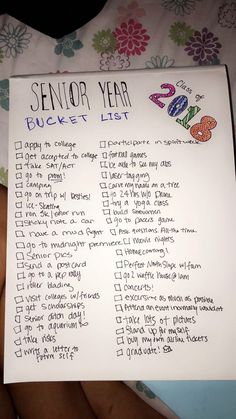 SENIOR YEAR
BUCKET LIST
Class of
2018
apply to college
Get accepted to college
take SAT/ACT
go to prom!
camping
go on trip w/ besties!
ice-skating
run 5k/color run
sticky note a car
have a mud fight
go to midnight premiere
Senior pics
Send a postcard
go to a pep rally
roller blading
visit colleges w/ friends
get scholarships
Senior ditch day!
go to aquarium
take risks
write a letter to future self
participate in spirit week
football games
be able to see my abs
laser-tagging
carve my name on a tree
go 24 hrs w/o phone
try a yoga class
build snowmen
go to games
Ask questions All the time
movie nights
Homecoming!
Perfect Night Slope w/ fam
go 2 waffle house @ 1am
concerts!
excersise as much as possible
Attend an event normally wouldnt
take lots of pictures
Stand up for myself
buy my own airline tickets
graduate!